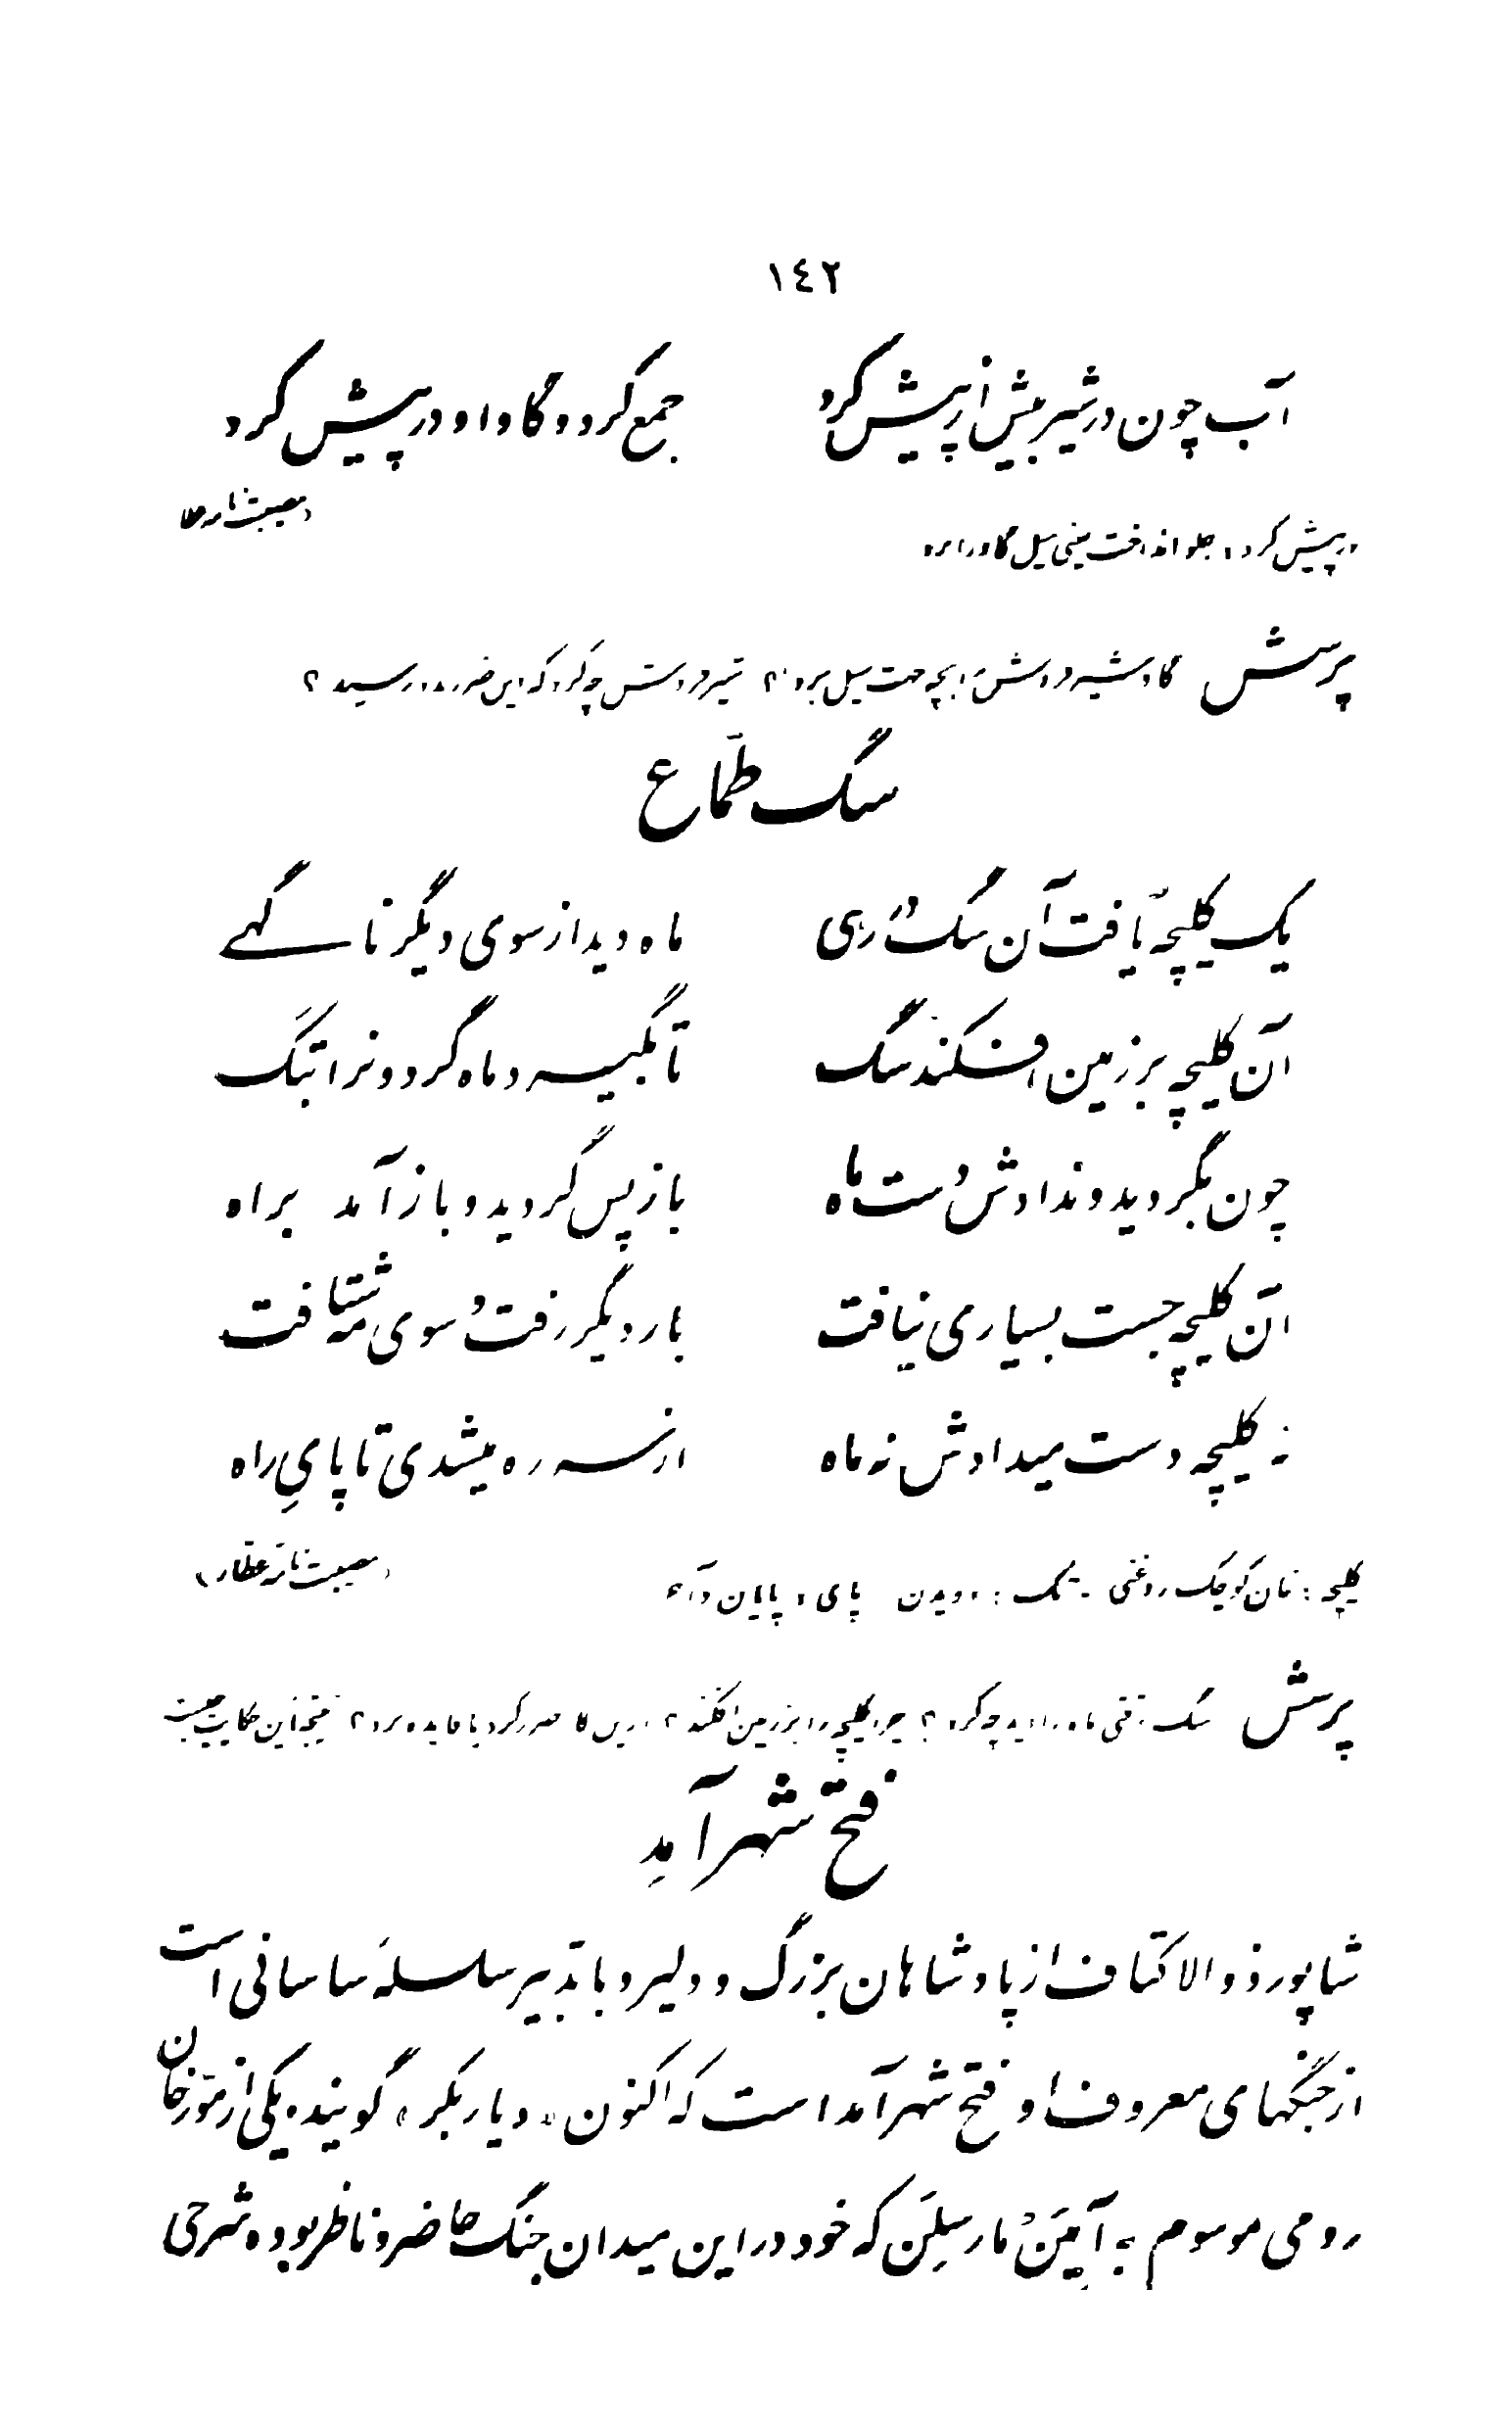 ١٤٢
آب چون در شیر بیش از پیش کرد جمع کرد و گاو او در پیش کرد
(مصیبت نامه عطار)
در پیش کرد، جلو انداخت یعنی سیل گاو را برد
پرسش گاو شیر فروش را بچه جهت سیل برد؟ شیر فروش چه کرد که این ضرر باو رسید؟
سگ طمّاع
یک کلیچه یافت آن سگ در رهی ماه دید از سوی دیگر ناگهے
آن کلیچه بر زمین افکند سگ تا بگیرد ماه گردونرا بتَک
چون بگردید و ندادش دست ماه باز پس گردید و باز آمد براه
آن کلیچه جست بسیاری نیافت بار دیگر رفت و سوی مه شتافت
نه کلیچه دست میدادش نه ماه از سر ره میشدی تا پایِ راه
کلیچه: نان کوچک روغنی - تک: دویدن پای، پایان و آخر
(مصیبت نامه عطار)
پرسش سگ وقتی ماه را دید چه کرد؟ چرا کلیچه را بر زمین افکند؟ از این کار ضرر کرد یا فایده برد؟ نتیجه این حکایت چیست
فتح شهر آمِد
شاپور ذوالاکتاف از پادشاهان بزرگ و دلیر و با تدبیر سلسلهٔ ساسانی است
از جنگهای معروف او فتح شهر آمد است که اکنون «دیار بکر» گویند. یکی از مورّخان
رومی موسوم به آمِیَنُ مارسِلَن که خود در این میدان جنگ حاضر و ناظر بوده شرحی